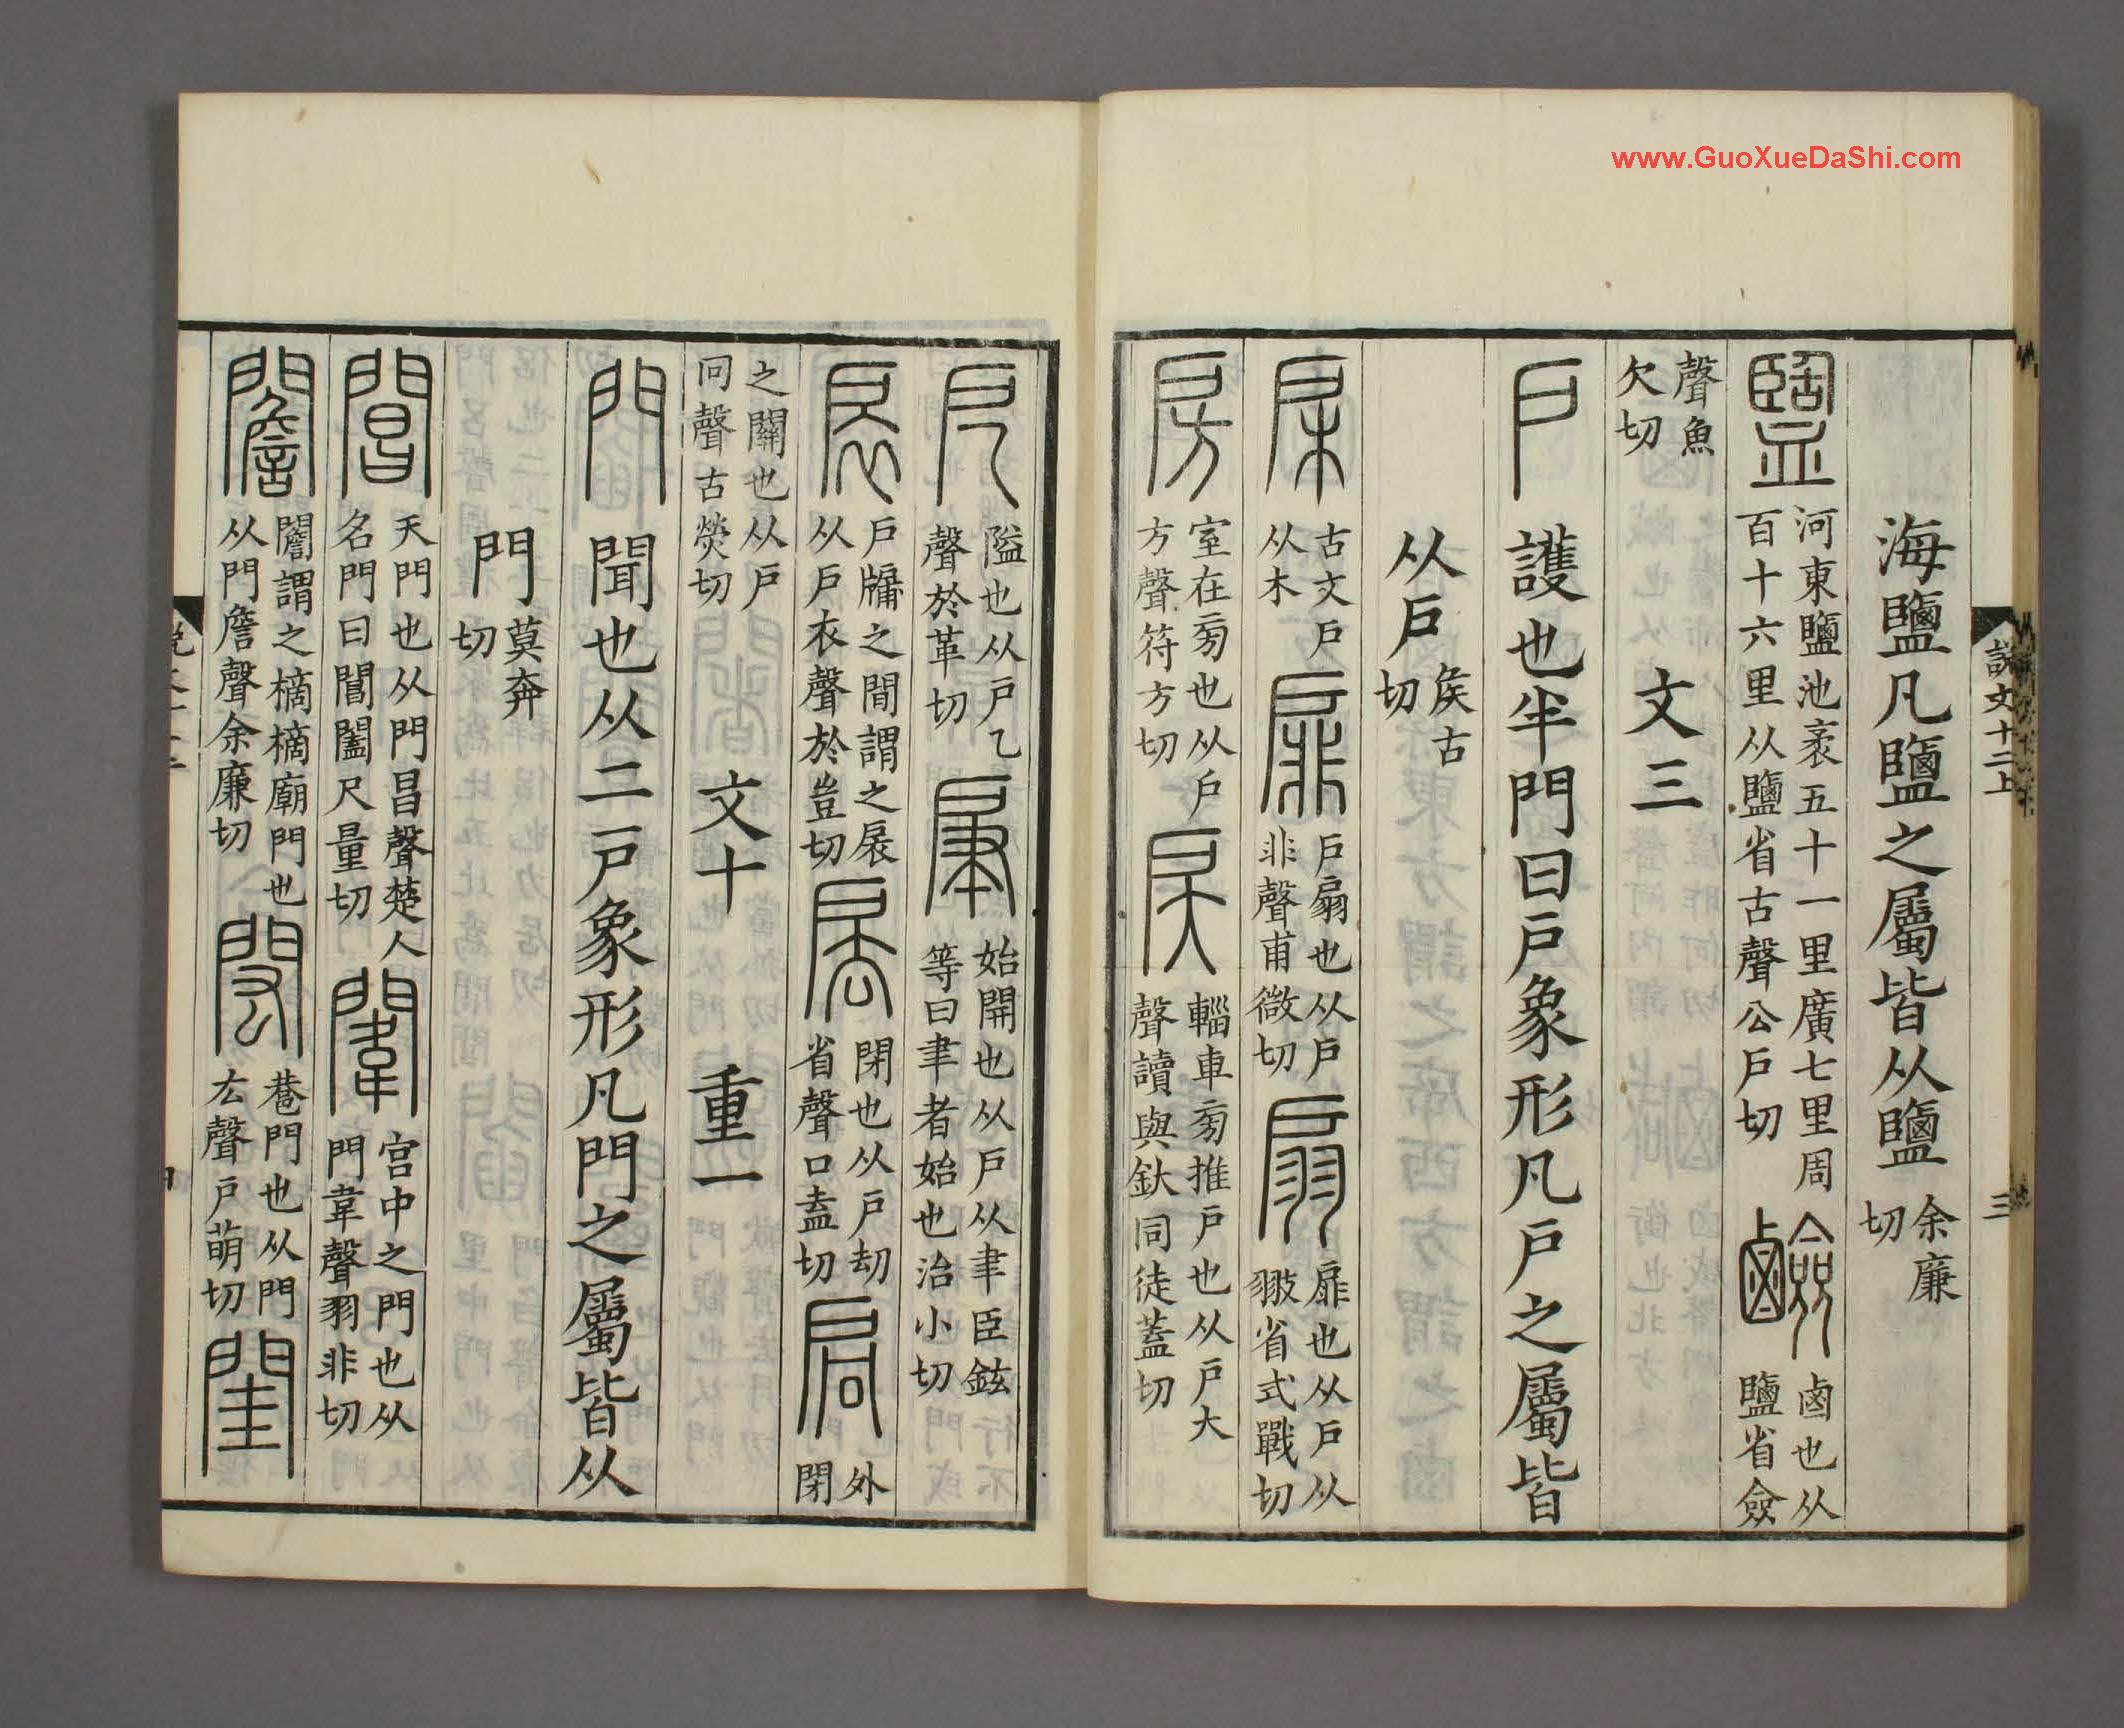 www.GuoXueDaShi.com
說文十二上
三
海鹽凡鹽之屬皆从鹽余廉切
鹽河東鹽池袤五十一里廣七里周百十六里从鹽省古聲公戶切鹼鹵也从鹽省僉
聲魚欠切
文三
戶護也半門曰戶象形凡戶之屬皆
从戶矦古切
𣐖古文戶从木扉戶扇也从戶非聲甫微切扇扉也从戶从翄省式戰切
房室在㫄也从戶方聲符方切戾輜車㫄推戶也从戶大聲讀與釱同徒蓋切
戹隘也从戶乙聲於革切肁始開也从戶从聿臣鉉等曰聿者始也治小切
扆戶牖之閒謂之扆从戶衣聲於豈切㕎閉也从戶劫省聲口盍切扃外閉
之關也从戶冋聲古熒切
文十
重一
門聞也从二戶象形凡門之屬皆从
門莫奔切
閶天門也从門昌聲楚人名門曰閶闔尺量切闈宮中之門也从門韋聲羽非切
闈謂之樀樀廟門也从門詹聲余廉切閎巷門也从門厷聲戶萌切閨